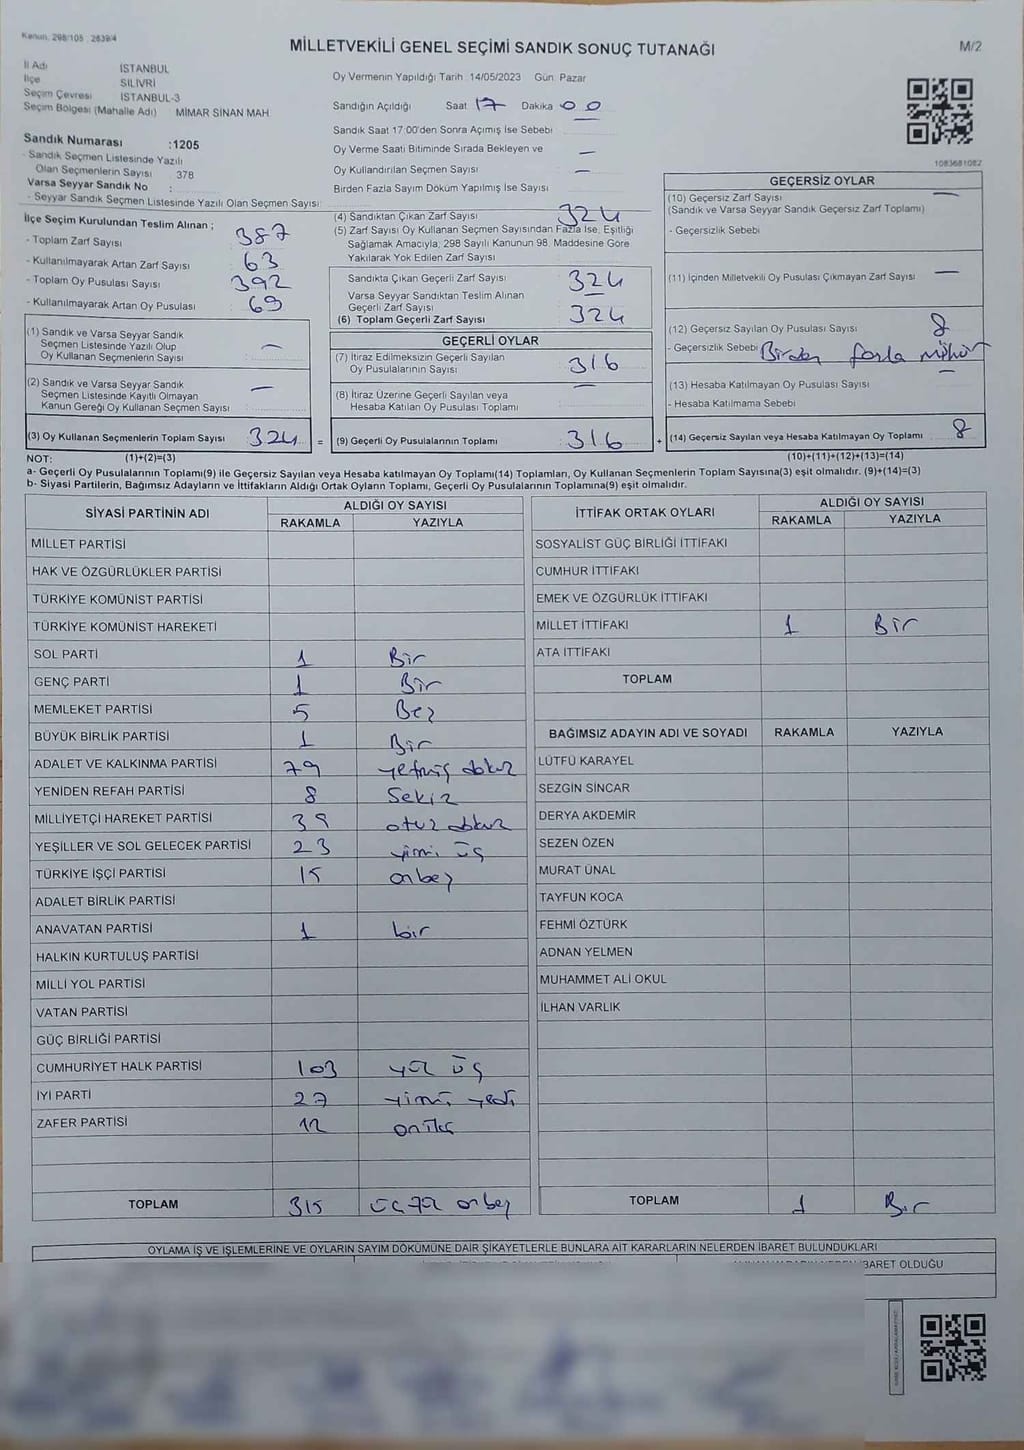 Kanun: 298/105 : 2839/4
MİLLETVEKİLİ GENEL SEÇİMİ SANDIK SONUÇ TUTANAĞI
M/2
İl Adı İSTANBUL
İlçe SİLİVRİ
Seçim Çevresi İSTANBUL-3
Seçim Bölgesi (Mahalle Adı) MİMAR SİNAN MAH
Oy Vermenin Yapıldığı Tarih 14/05/2023 Gün: Pazar
Sandığın Açıldığı Saat 17 Dakika 00
Sandık Saat 17:00'den Sonra Açımış İse Sebebi
Oy Verme Saati Bitiminde Sırada Bekleyen ve –
Oy Kullandırılan Seçmen Sayısı –
Birden Fazla Sayım Döküm Yapılmış İse Sayısı
1083681082
Sandık Numarası :1205
- Sandık Seçmen Listesinde Yazılı
Olan Seçmenlerin Sayısı : 378
Varsa Seyyar Sandık No :
- Seyyar Sandık Seçmen Listesinde Yazılı Olan Seçmen Sayısı:
İlçe Seçim Kurulundan Teslim Alınan ;
- Toplam Zarf Sayısı 387
- Kullanılmayarak Artan Zarf Sayısı 63
- Toplam Oy Pusulası Sayısı 392
- Kullanılmayarak Artan Oy Pusulası 69
(1) Sandık ve Varsa Seyyar Sandık
Seçmen Listesinde Yazılı Olup
Oy Kullanan Seçmenlerin Sayısı –
(2) Sandık ve Varsa Seyyar Sandık
Seçmen Listesinde Kayıtlı Olmayan
Kanun Gereği Oy Kullanan Seçmen Sayısı –
(3) Oy Kullanan Seçmenlerin Toplam Sayısı 324 =
(4) Sandıktan Çıkan Zarf Sayısı 324
(5) Zarf Sayısı Oy Kullanan Seçmen Sayısından Fazla İse, Eşitliği
Sağlamak Amacıyla, 298 Sayılı Kanunun 98. Maddesine Göre
Yakılarak Yok Edilen Zarf Sayısı
Sandıkta Çıkan Geçerli Zarf Sayısı 324
Varsa Seyyar Sandıktan Teslim Alınan
Geçerli Zarf Sayısı –
(6) Toplam Geçerli Zarf Sayısı 324
GEÇERLİ OYLAR
(7) İtiraz Edilmeksizin Geçerli Sayılan
Oy Pusulalarının Sayısı 316
(8) İtiraz Üzerine Geçerli Sayılan veya
Hesaba Katılan Oy Pusulası Toplamı –
(9) Geçerli Oy Pusulalarının Toplamı 316 +
GEÇERSİZ OYLAR
(10) Geçersiz Zarf Sayısı –
(Sandık ve Varsa Seyyar Sandık Geçersiz Zarf Toplamı)
- Geçersizlik Sebebi
(11) İçinden Milletvekili Oy Pusulası Çıkmayan Zarf Sayısı –
(12) Geçersiz Sayılan Oy Pusulası Sayısı 8
- Geçersizlik Sebebi Birden fazla mühür
(13) Hesaba Katılmayan Oy Pusulası Sayısı –
- Hesaba Katılmama Sebebi
(14) Geçersiz Sayılan veya Hesaba Katılmayan Oy Toplamı 8
NOT: (1)+(2)=(3)
(10)+(11)+(12)+(13)=(14)
a- Geçerli Oy Pusulalarının Toplamı(9) ile Geçersiz Sayılan veya Hesaba katılmayan Oy Toplamı(14) Toplamları, Oy Kullanan Seçmenlerin Toplam Sayısına(3) eşit olmalıdır. (9)+(14)=(3)
b- Siyasi Partilerin, Bağımsız Adayların ve İttifakların Aldığı Ortak Oyların Toplamı, Geçerli Oy Pusulalarının Toplamına(9) eşit olmalıdır.
SİYASİ PARTİNİN ADI ALDIĞI OY SAYISI
RAKAMLA YAZIYLA
MİLLET PARTİSİ
HAK VE ÖZGÜRLÜKLER PARTİSİ
TÜRKİYE KOMÜNİST PARTİSİ
TÜRKİYE KOMÜNİST HAREKETİ
SOL PARTİ 1 Bir
GENÇ PARTİ 1 Bir
MEMLEKET PARTİSİ 5 Beş
BÜYÜK BİRLİK PARTİSİ 1 Bir
ADALET VE KALKINMA PARTİSİ 79 yetmiş dokuz
YENİDEN REFAH PARTİSİ 8 Sekiz
MİLLİYETÇİ HAREKET PARTİSİ 39 otuz dokuz
YEŞİLLER VE SOL GELECEK PARTİSİ 23 yirmi üç
TÜRKİYE İŞÇİ PARTİSİ 15 onbeş
ADALET BİRLİK PARTİSİ
ANAVATAN PARTİSİ 1 bir
HALKIN KURTULUŞ PARTİSİ
MİLLİ YOL PARTİSİ
VATAN PARTİSİ
GÜÇ BİRLİĞİ PARTİSİ
CUMHURİYET HALK PARTİSİ 103 yüz üç
İYİ PARTİ 27 yirmi yedi
ZAFER PARTİSİ 12 oniki
TOPLAM 315 üçyüz onbeş
İTTİFAK ORTAK OYLARI ALDIĞI OY SAYISI
RAKAMLA YAZIYLA
SOSYALİST GÜÇ BİRLİĞİ İTTİFAKI
CUMHUR İTTİFAKI
EMEK VE ÖZGÜRLÜK İTTİFAKI
MİLLET İTTİFAKI 1 Bir
ATA İTTİFAKI
TOPLAM
BAĞIMSIZ ADAYIN ADI VE SOYADI RAKAMLA YAZIYLA
LÜTFÜ KARAYEL
SEZGİN SİNCAR
DERYA AKDEMİR
SEZEN ÖZEN
MURAT ÜNAL
TAYFUN KOCA
FEHMİ ÖZTÜRK
ADNAN YELMEN
MUHAMMET ALİ OKUL
İLHAN VARLIK
TOPLAM 1 Bir
OYLAMA İŞ VE İŞLEMLERİNE VE OYLARIN SAYIM DÖKÜMÜNE DAİR ŞİKAYETLERLE BUNLARA AİT KARARLARIN NELERDEN İBARET BULUNDUKLARI
İBARET OLDUĞU